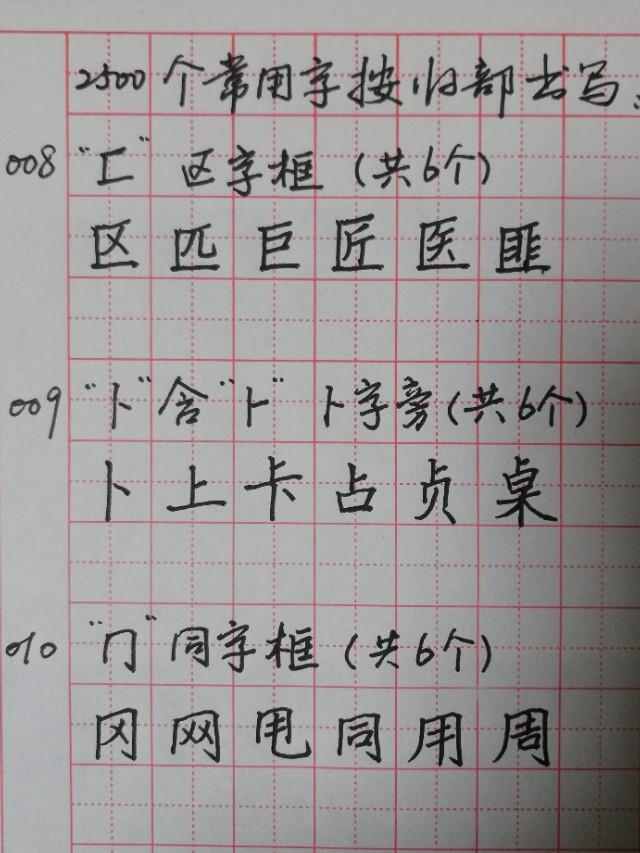 2500个常用字按归部书写:
008 "匚" 区字框(共6个)
区 匹 巨 匠 医 匪
009 "卜"含"⺊" 卜字旁(共6个)
卜 上 卡 占 贞 桌
010 "冂"同字框(共6个)
冈 网 甩 同 用 周